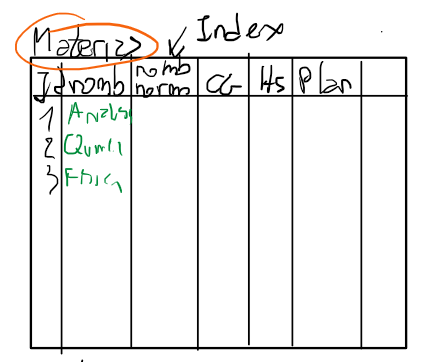 Materias Index
Id nomb nomb norm CG Hs Plan
1 Analisi
2 Quimi
3 Fisica